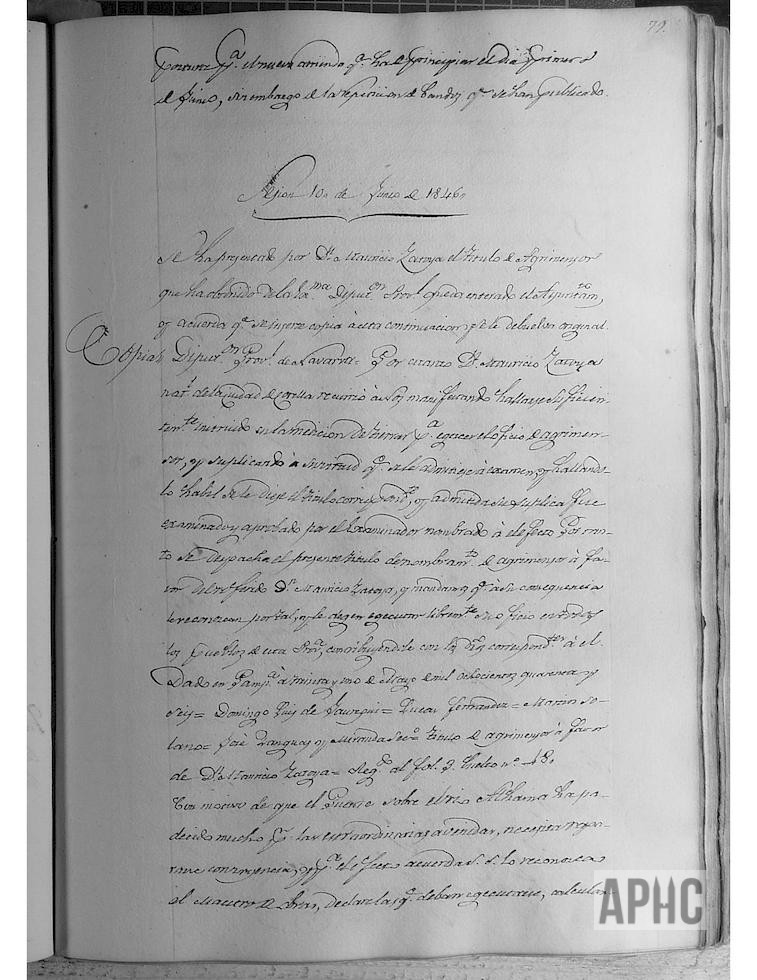 79.
p.ª el nuevo arriendo q.e ha de principiar el dia primero
de Junio, sin embargo de la repeticion de bandos q.e se han publicado.
Sesion 10 de Junio de 1846,
Se ha presentado por D.n Mauricio Zatoya el titulo de Agrimensor
que ha obtenido de la Ex.ma Diput.on Prov.l queda enterado el Ayuntam.to
y acuerda q.e se inserte copia à esta continuacion y se le debuelva original.
Copia = Diput.on Prov.l de Navarra = Por cuanto D.n Mauricio Zatoya
nat.l de la ciudad de Corella recurrió à Nos manifestando hallarse suficien-
tem.te instruido en la medicion de tierras p.ª egercer el oficio de agrimen-
sor, y suplicando à q.e se le admitiese à examen, y hallando-
lo habil se le diese el titulo correspond.te, y admitida su suplica fue
examinado y aprobado por el Examinador nombrado à el efecto. Por tan-
to se despacha el presente titulo de nombram.to de agrimensor à fa-
vor del referido D.n Mauricio Zatoya, y mandamos q.e à su consequencia
le reconozcan por tal, y le degen egecutar librem.te su oficio en todos
los Pueblos de esta Prov.ª, contribuyendole con los dros correspond.tes à el.
Dado en Pamp.ª à treinta y uno de Mayo de mil ochocientos quarenta y
seis = Domingo Luis de Jauregui = Lucas Fernandez = Marcos So-
lano = José Yanguas y Miranda Sec.o = Titulo de agrimensor à favor
de D.n Mauricio Zatoya = Reg.do al fol. 9. buelto n.o 18,
Con motivo de que el Puente sobre el rio Alhama ha pa-
decido mucho p.r las extraordinarias avenidas, necesita repa-
rarse con urgencia, y p.ª el efecto acuerda S.S. lo reconozca
el Maestro de obras, declare las q.e deban egecutarse, calculan-
APHC